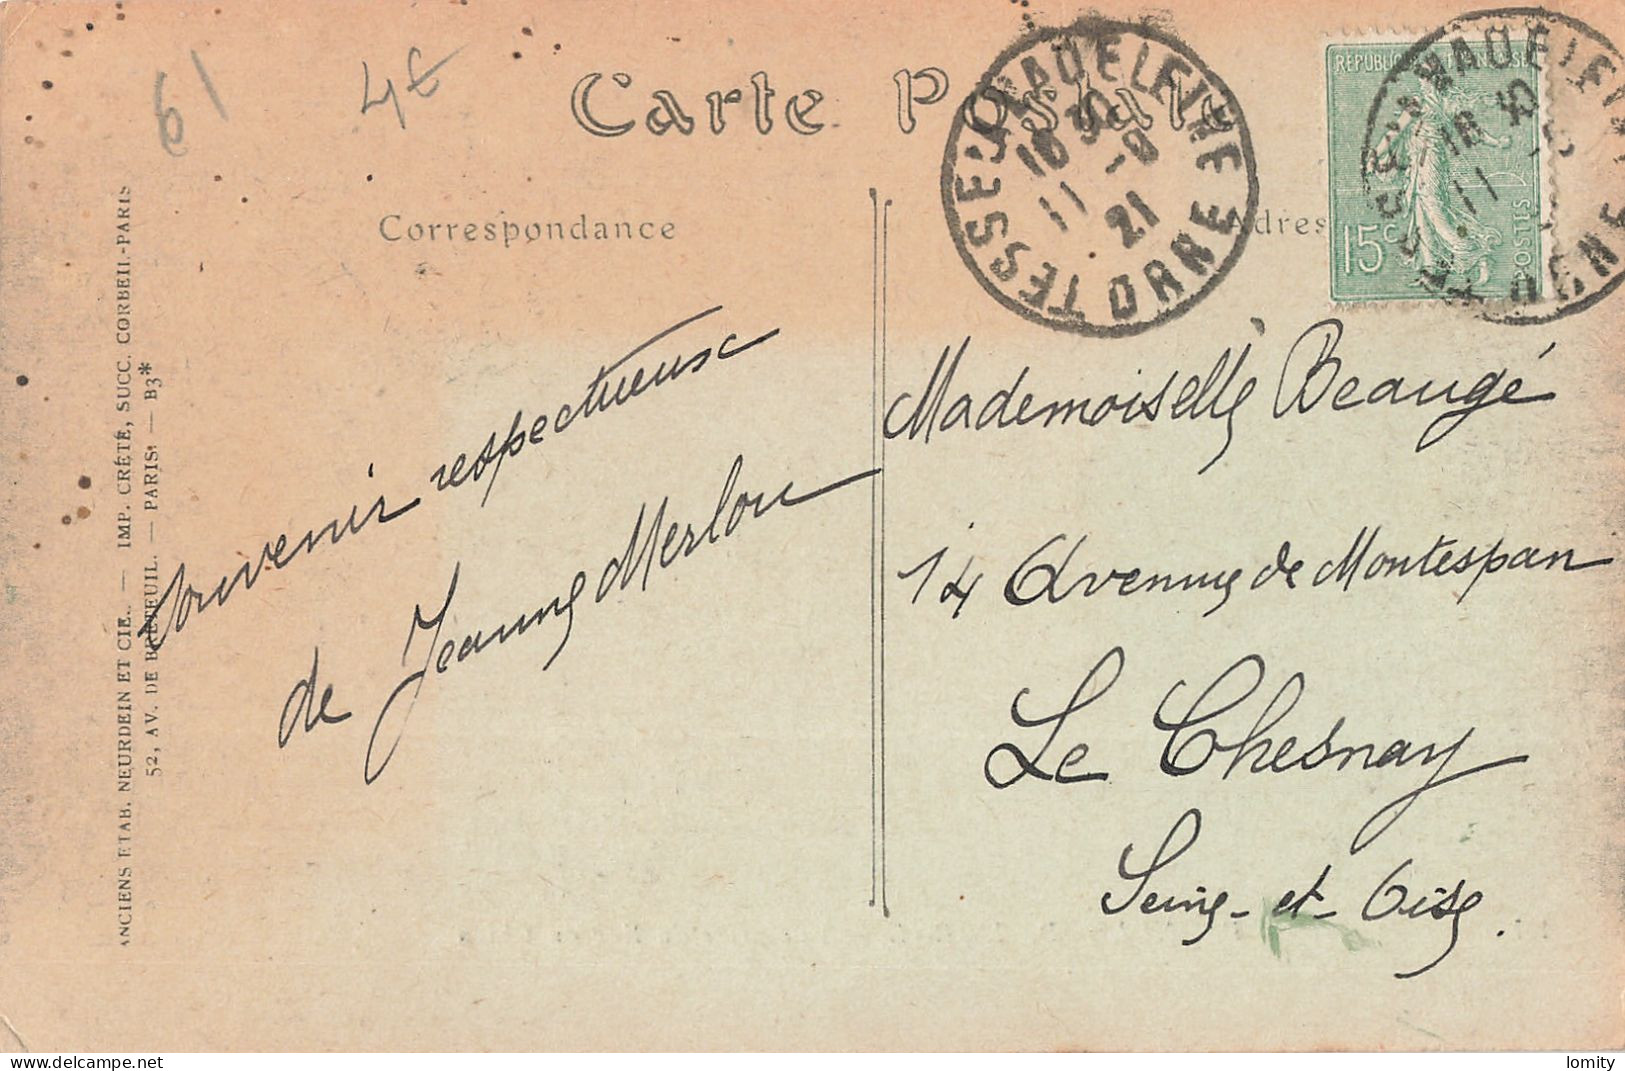 61
4€
Carte Postale
TESSE LA MADELEINE
16 30
11 -9
21
ORNE
REPUBLIQUE FRANÇAISE
15c
POSTES
Correspondance
Adres
ANCIENS ETAB. NEURDEIN ET CIE. — IMP. CRÉTÉ, SUCC. CORBEIL.-PARIS
52, AV. DE BRETEUIL. — PARIS — B3*
Souvenir respectueux
de Jeanne Merlou
Mademoiselle Beaugé
14 Avenue de Montespan
Le Chesnay
Seine-et-Oise.
lomity